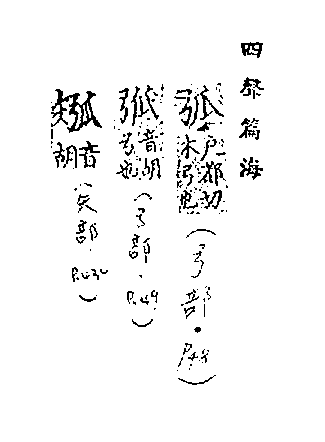 四聲篇海
弧 戶都切
木弓也
(弓部.P48)
音胡
弓也
(弓部.P.49)
音
胡
(矢部.